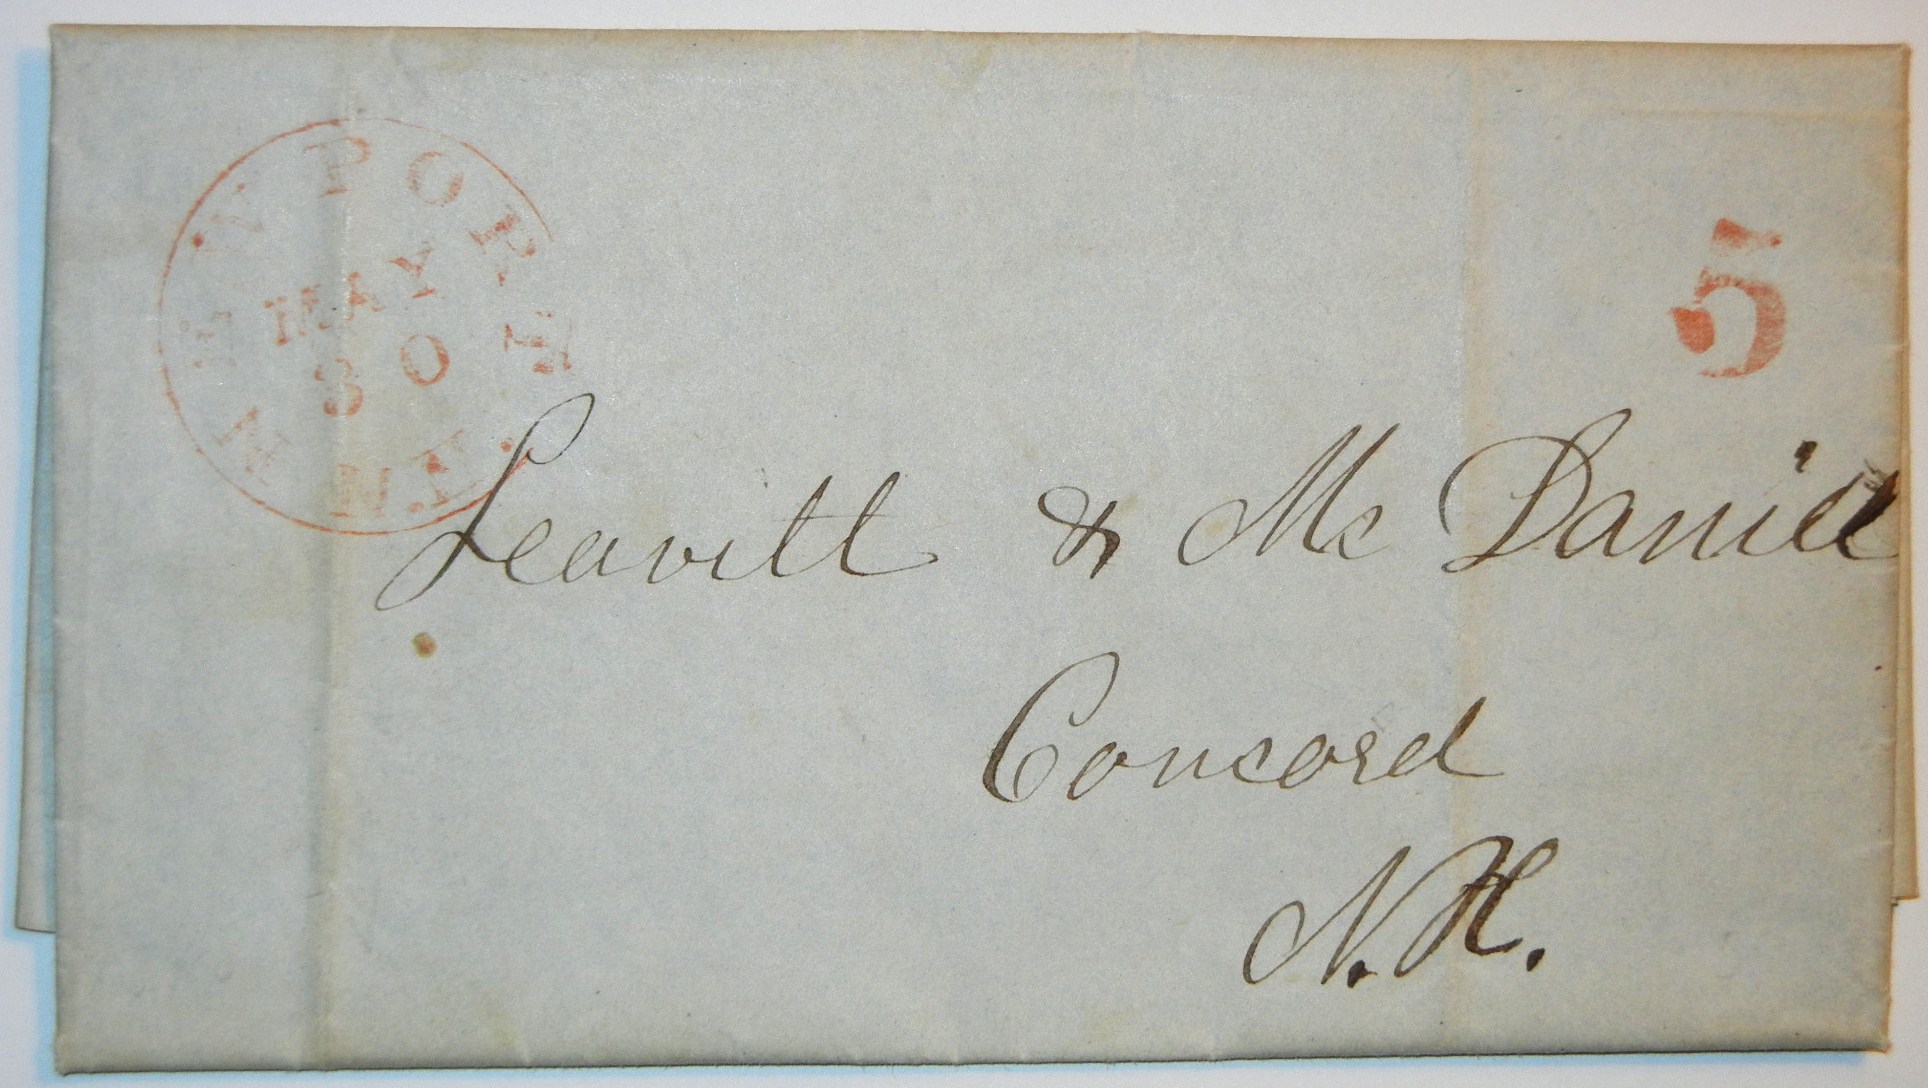 NEWPORT
MAY
30
N.H.
5
Leavitt & Mc Daniel
Concord
N.H.